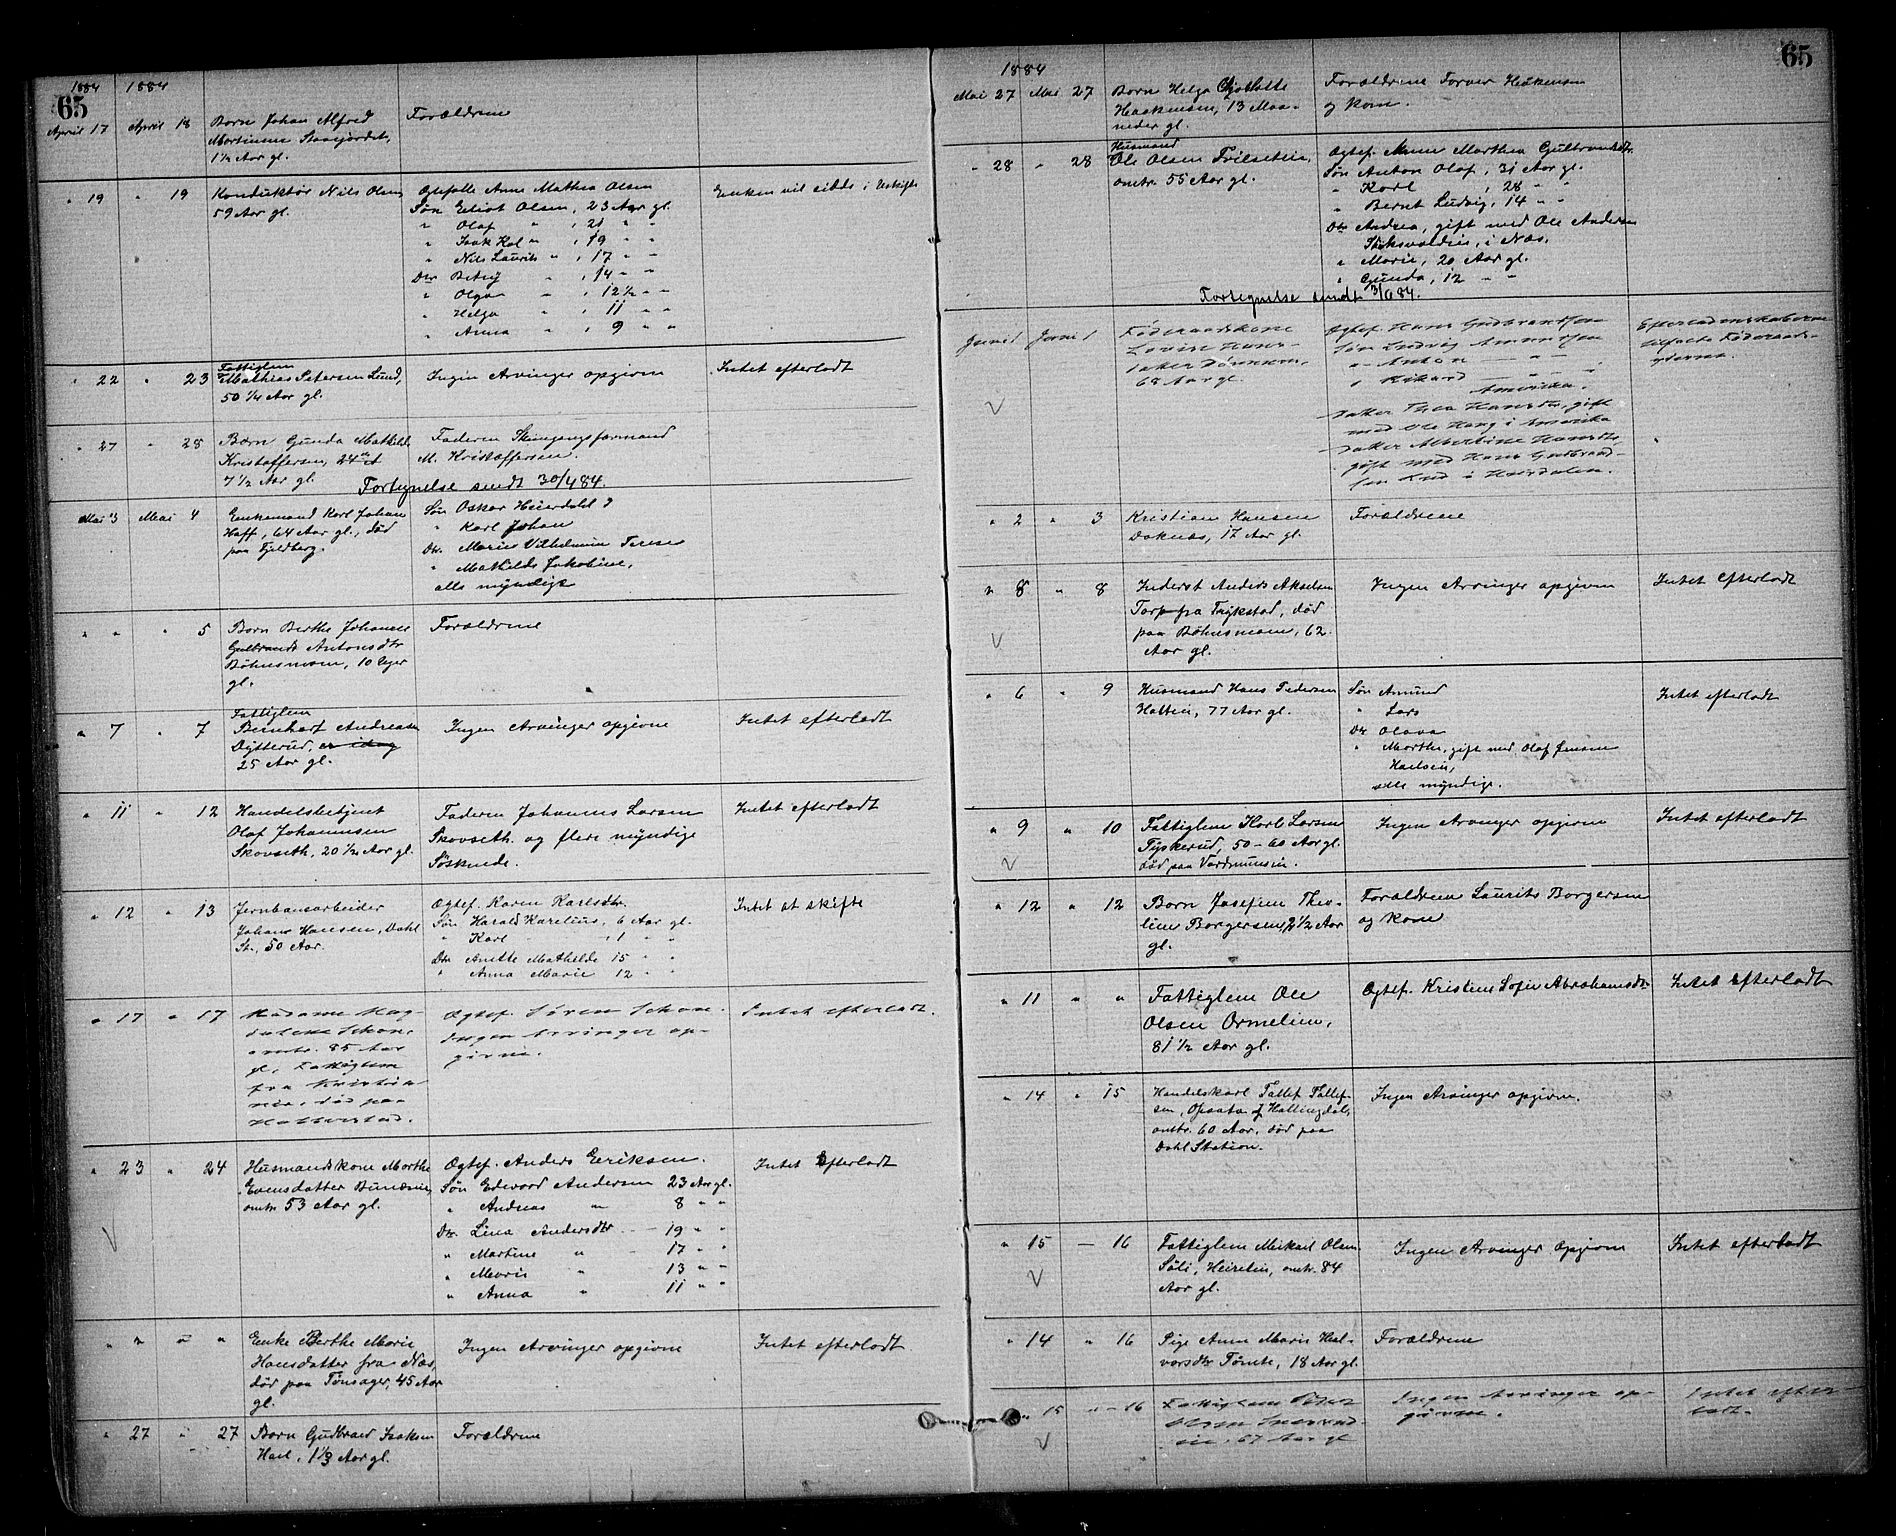 65
1884 1884
April 17 April 18 Barn Johan Alfred Forældrene
Mortinsen
1½ Aar gl.
" 19 " 19 Konduktør Nils Olsen, Ægtefælle Anne Mathea Olsen Enken vil sidde i Uskifte
59 Aar gl. Søn Eliot Olsen, 23 Aar gl.
" Olaf " , 21 " "
" Isak Kal " , 19 " "
" Nils Laurits " , 17 " "
Dtr. Betsy " , 14 " "
" Olga " , 12½ " "
" Helga " , 11 " "
" Anna " , 9 " "
Fattiglem
" 22 " 23 Mathias Petersen Lund, Ingen Arvinger opgivne Intet efterladt
50¼ Aar gl.
" 27 " 28 Barn Gunda Mathilde Faderen Skingangsformand
Kristoffersen, M. Kristoffersen.
7½ Aar gl.
Fortegnelse sendt 30/4 84.
Mai 3 Mai 4 Enkemand Karl Johan Søn Oskar Heierdahl ?
Haff, 64 Aar gl., død " Karl Johan
paa Fjeldberg. Dtr. Marie Vilhelmine Terese
" Mathilde Jakobine,
alle myndige
" " " 5 Barn Berthe Johanne Forældrene
Gulbrands Antonsdtr
Bøhnsmoen, 10 Uger
gl.
Fattiglem
" 7 " 7 Bernhard Andreasen Ingen Arvinger opgivne Intet efterladt
Dytterud, er idag
25 Aar gl.
" 11 " 12 Handelsbetjent Faderen Johannes Larsen Intet efterladt
Olaf Johannesen Skovseth og flere myndige
Skovseth, 20½ Aar gl. Søskende.
" 12 " 13 Jernbanearbeider Ægtef. Karen Karlsdtr. Intet at skifte
Johan Hansen, Dahl Søn Harald Karelius, 6 Aar gl.
St., 50 Aar. " Karl , 1 " "
Dtr. Anette Mathilde 15 " "
" Anna Marie 12 " "
" 17 " 17 Madame Mag- Ægtef. Søren Schou. Intet efterladt.
dalene Schou, Ingen Arvinger op-
omtr. 85 Aar givne.
gl., Fattiglem
fra Kristia-
nia, død paa
" 23 " 24 Husmandskone Marthe Ægtef. Anders Eriksen. Intet Efterladt
Evensdatter Bundsen, Søn Edward Andersen 23 Aar gl.
omtr. 53 Aar gl. " Andreas " 8 " "
Dtr. Lina Andersdtr. 19 " "
" Martine " 17 " "
" Marie " 13 " "
" Anna " 11 " "
" " " " Enke Berthe Marie Ingen Arvinger opgivne Intet efterladt
Hansdatter fra Næs,
død paa Tønsager, 45 Aar
gl.
" 27 " 27 Barn Gudbrand Isaksen Forældrene
1⅓ Aar gl.
65
1884
Mai 27 Mai 27 Barn Helga Charlotte Forældrene Forver Haakensen
Haakensen, 13 Maa- og kone.
neder gl.
Husmand
" 28 " 28 Ole Olsen Trilseteie, Ægtef. Anne Marthea Gulbrandsdtr.
omtr. 55 Aar gl. Søn Anton Olaf, 31 Aar gl.
" Karl , 28 " "
" Bernt Ludvig, 14 " "
Dtr. Andrea, gift med Ole Andersen
i Næs.
" Marie, 20 Aar gl.
" Gunda, 12 " "
Fortegnelse sendt 3/6 84.
Juni 1 Juni 1 Føderaadskone Ægtef. Hans Gudbrandsen Efterladenskaberne
Lovise Hans- Søn Ludvig tilfaldt Føderaads-
datter " Anton yderne.
68 Aar gl. " Rikard
Amerika.
Datter Thea Hansdtr, gift
med Ole Haug i Amerika
Datter Albertine Hansdtr,
gift med Hans Gudbrand-
sen Lund i Hurdalen.
" 2 " 3 Kristian Hansen Forældrene
Doknæs, 17 Aar gl.
" 8 " 8 Inderst Anders Akselsen Ingen Arvinger opgivne Intet Efterladt
Torp fra Trykstad, død
paa Bøhnsmoen, 62
Aar gl.
" 6 " 9 Husmand Hans Pedersen Søn Amund Intet efterladt
77 Aar gl. " Lars
Dtr. Olava
" Marthe, gift med Olaf Jensen
alle myndige.
" 9 " 10 Fattiglem Karl Larsen Ingen Arvinger opgivne Intet efterladt
Tyskerud, 50-60 Aar gl.
død paa
" 12 " 12 Barn Josefine Theo- Forældrene Laurits Borgersen
line Borgersen, 2½ Aar og kone
gl.
" 11 " " Fattiglem Ole Ægtef. Kristine Sofie Abrahamsdtr. Intet efterladt
Olsen Ormelien,
81½ Aar gl.
" 14 " 15 Handelskarl Tallef Tallef- Ingen Arvinger opgivne.
sen, af Hallingdal,
omtr. 60 Aar, død paa
Dahl Station.
" 15 — 16 Fattiglem Mikael Olsen Ingen Arvinger opgivne Intet efterladt
omtr. 84
Aar gl.
" 14 " 16 Pige Anne Marie Hal- Forældrene
vorsdtr Tømte, 18 Aar gl.
" 15 " 16 Fattiglem Peder Ingen Arvinger op- Intet efter-
Olsen givne. ladt.
67 Aar gl